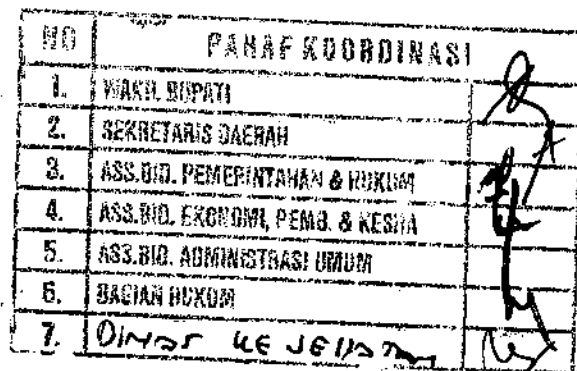 NO PARAF KOORDINASI
1. WAKIL BUPATI
2. SEKRETARIS DAERAH
3. ASS.BID. PEMERINTAHAN & HUKUM
4. ASS.BID. EKONOMI, PEMB. & KESRA
5. ASS.BID. ADMINISTRASI UMUM
6. BAGIAN HUKUM
7. DINAS